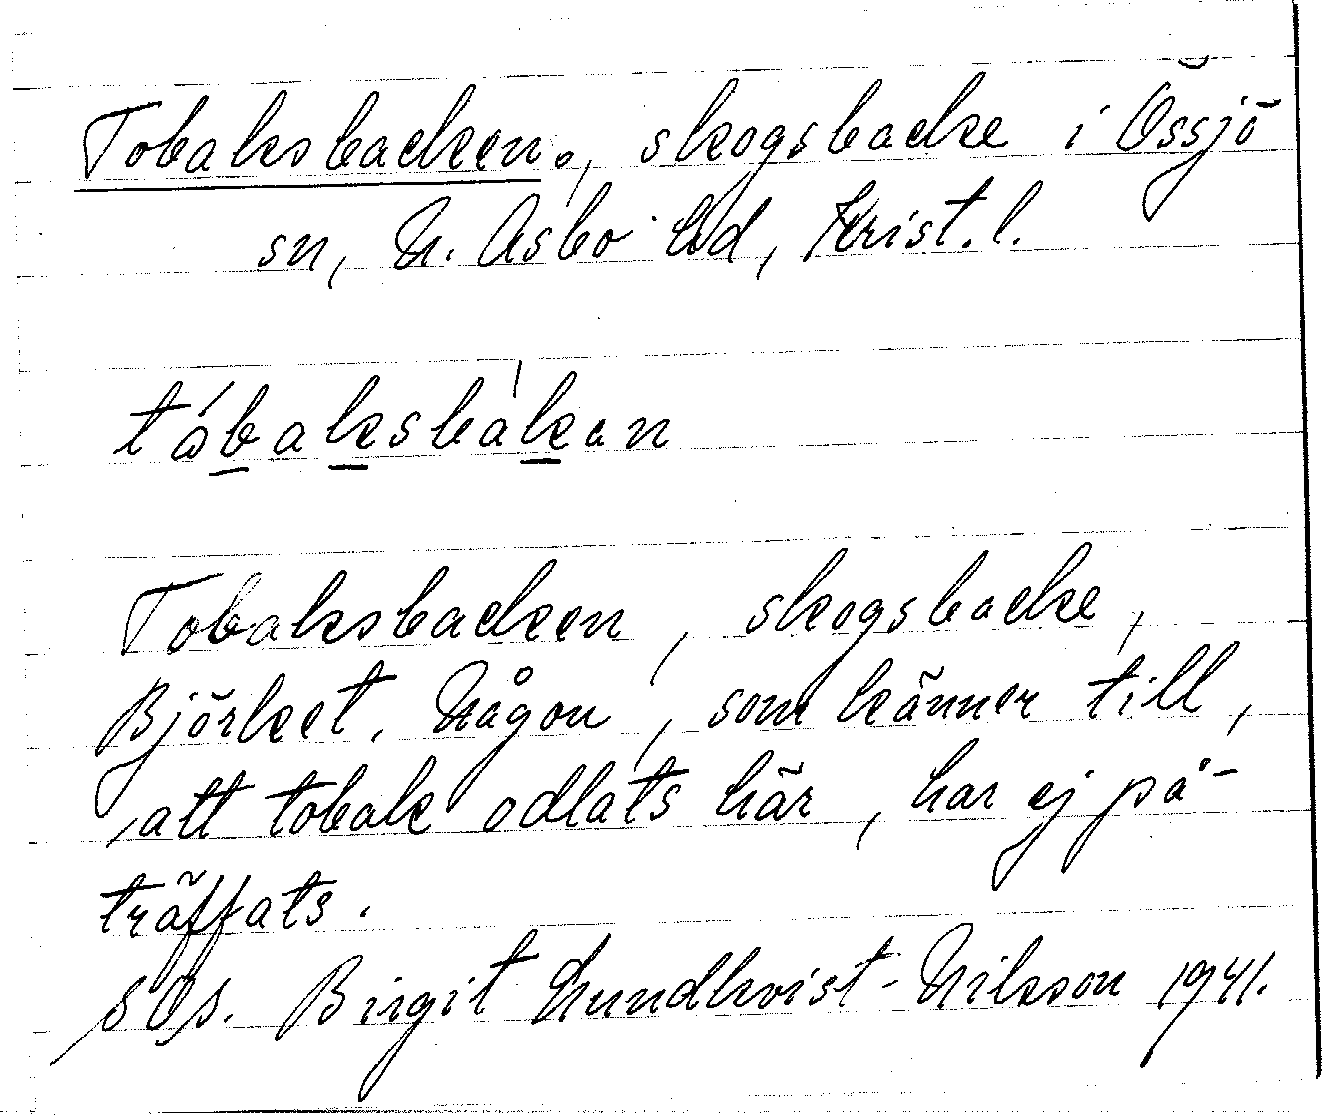 Tobaksbacken., skogsbacke i Össjö
sn, N. Åsbo hd, Krist. l.
tåbaksbakan
Tobaksbacken, skogsbacke,
Björket. Någon, som känner till,
att tobak odlats här, har ej på-
träffats.
Birgit Lundkvist-Nilsson 1941.